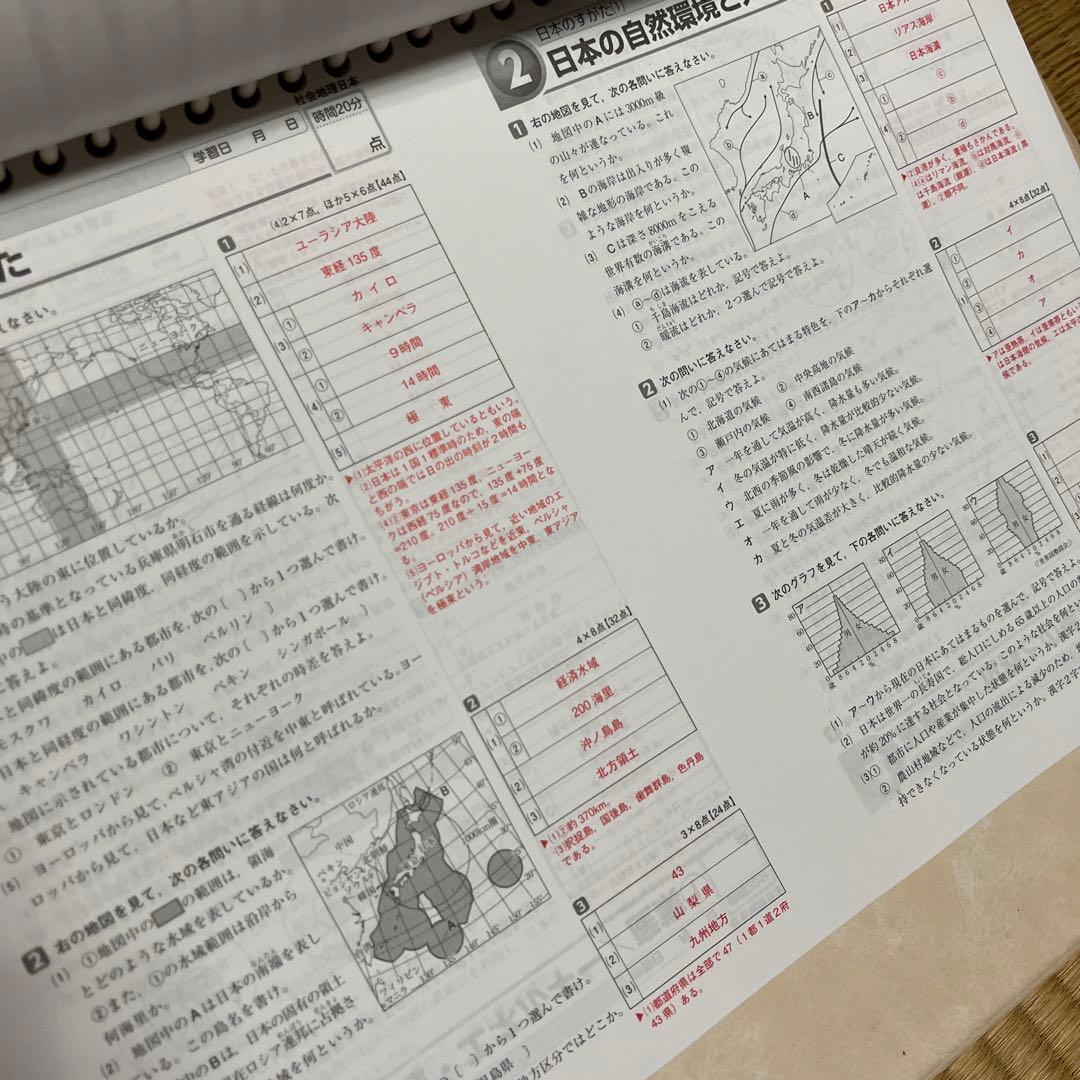 社会地理日本
時間20分
学習日 月 日
点
(4)2×7点, ほか5×6点【44点】
1
(1) ユーラシア大陸
(2) 東経135度
(3) ① カイロ
② キャンベラ
(4) ① 9時間
② 14時間
(5) 極東
▶(1)太平洋の西に位置しているともいう。
(2)日本は1国1標準時のため, 東の端
と西の端では日の出の時刻が2時間も
ちがう。
(4)②東京は東経135度, ニューヨー
クは西経75度なので, 135度+75度
=210度, 210度÷15度=14時間とな
る。
(5)ヨーロッパから見て, 近い地域のエ
ジプト, トルコなどを近東, ペルシャ
(ペルシア)湾岸地域を中東, 東アジア
を極東という。
大陸の東に位置しているか。
時の基準となっている兵庫県明石市を通る経線は何度か。
は日本と同緯度, 同経度の範囲を示している。次
答えよ。
と同緯度の範囲にある都市を, 次の( )から1つ選んで書け。
モスクワ カイロ パリ ベルリン )
日本と同経度の範囲にある都市を, 次の( )から1つ選んで書け。
キャンベラ ワシントン ペキン シンガポール )
地図に示されている都市について, それぞれの時差を答えよ。
① 東京とロンドン ② 東京とニューヨーク
(5) ヨーロッパから見て, ペルシャ湾の付近を中東と呼ばれている。ヨー
ロッパから見て, 日本など東アジアの国は何と呼ばれるか。
2 右の地図を見て, 次の各問いに答えなさい。
(1) ①地図中の の範囲は, 領海
とどのような水域を表しているか。
②また, ①の水域範囲は沿岸から
何海里か。
(2) 地図中のAは日本の南端を表し
ている。この島名を書け。
中のBは, 日本の固有の領土
現在ロシア連邦に占拠さ
域を何というか。
ロシア連邦
中国
北朝鮮
ペキン
ピョンヤン
韓国
台湾
フィリピン
マニラ
A
B
4×8点【32点】
2
(1) ① 経済水域
② 200海里
(2) 沖ノ鳥島
(3) 北方領土
▶(1)②約370km。
(3)択捉島, 国後島, 歯舞群島, 色丹島
である。
3×8点【24点】
3
(1) 43
(2) 山梨県
(3) 九州地方
▶(1)都道府県は全部で47(1都1道2府
43県)ある。
( )から1つ選んで書け。
地方区分ではどこか。
日本のすがた(1)
2 日本の自然環境と
1 右の地図を見て, 次の各問いに答えなさい。
(1) 地図中のAには3000m級
の山々が連なっている。これ
を何というか。
(2) Bの海岸は出入りが多く複
雑な地形の海岸である。この
ような海岸を何というか。
(3) Cは深さ8000mをこえる
世界有数の海溝である。この
海溝を何というか。
(4) ⓐ~ⓓは海流を表している。
① 千島海流はどれか, 記号で答えよ。
② 暖流はどれか, 2つ選んで記号で答えよ。
2 次の問いに答えなさい。
(1) 次の①~④の気候にあてはまる特色を, 下のア~カからそれぞれ選
んで, 記号で答えよ。
① 北海道の気候 ② 中央高地の気候
③ 瀬戸内の気候 ④ 南西諸島の気候
ア 一年を通して気温が高く, 降水量も多い気候。
イ 冬の気温が特に低く, 降水量が比較的少ない気候。
ウ 北西の季節風の影響で, 冬に降水量が多い気候。
エ 夏に雨が多く, 冬は乾燥した晴天が続く気候。
オ 一年を通して雨が少なく, 冬でも温和な気候。
カ 夏と冬の気温差が大きく, 比較的降水量の少ない気候。
3 次のグラフを見て, 下の各問いに答えなさい。
ア
イ
ウ
男 女
(1) ア~ウから現在の日本にあてはまるものを選んで, 記号で答えよ。
(2) 日本は世界一の長寿国で, 総人口にしめる65歳以上の人口の
が約20%に達する社会となっている。このような社会を何とい
(3)① 都市に人口や産業が集中した状態を何というか。漢字2
② 農山村地域などで, 人口の流出による減少のため,
持できなくなっている状態を何というか。漢字2字
1
リアス海岸
日本海溝
ⓒ
ⓑ
ⓓ
▶(2)良港が多く, 養殖もさかんである。
(4)ⓐはリマン海流, ⓑは対馬海流, ⓒ
は千島海流(親潮), ⓓは日本海流(黒
潮)。②順不同。
4×8点【32点】
2
(1) ① イ
② カ
③ オ
④ ア
3